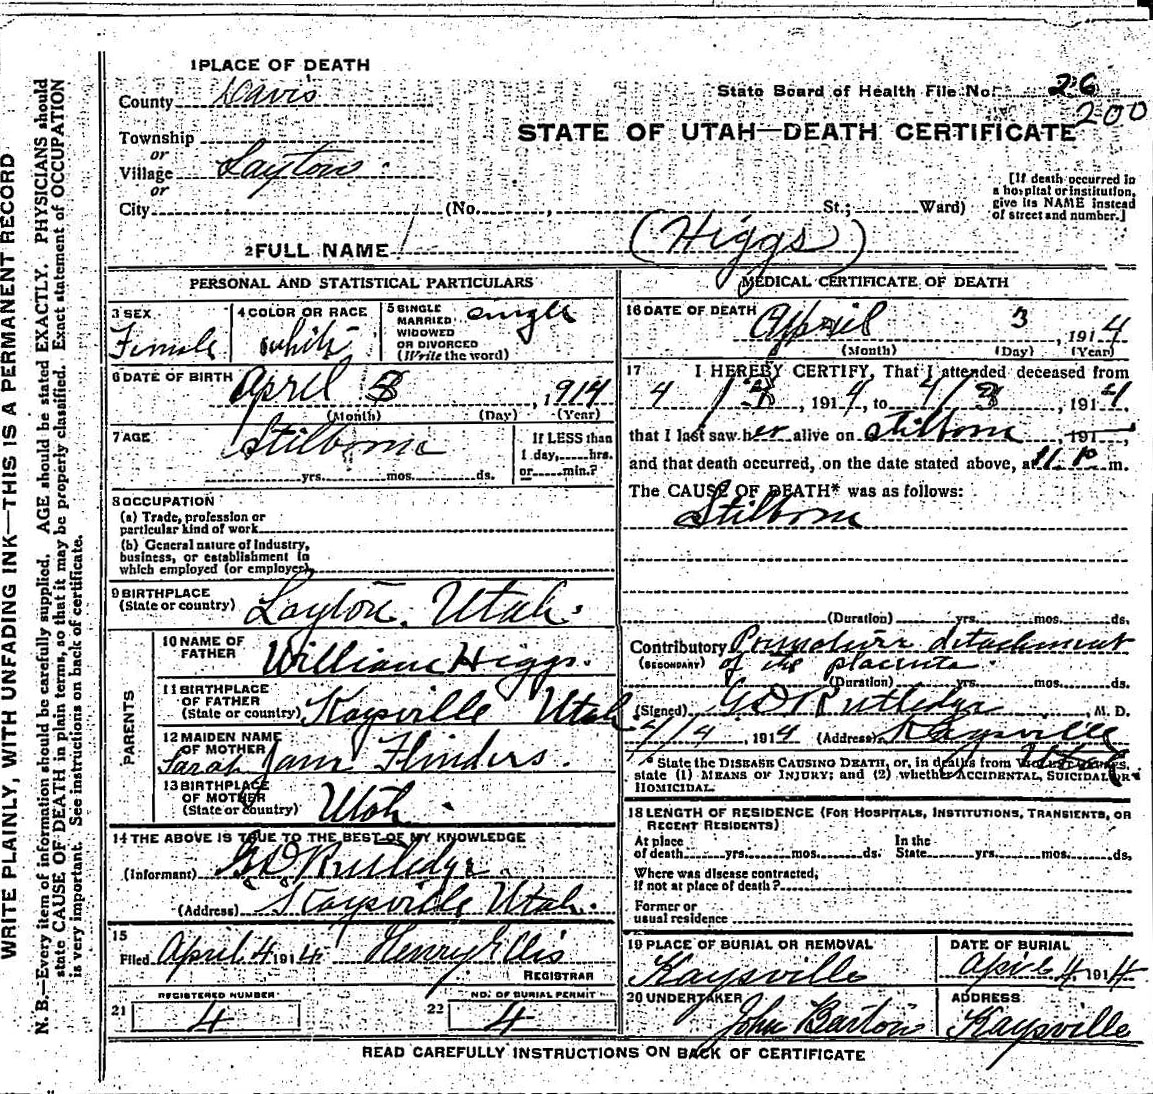 WRITE PLAINLY, WITH UNFADING INK—THIS IS A PERMANENT RECORD
N. B.—Every item of information should be carefully supplied. AGE should be stated EXACTLY. PHYSICIANS should
state CAUSE OF DEATH in plain terms, so that it may be properly classified. Exact statement of OCCUPATION
is very important. See instructions on back of certificate.
1 PLACE OF DEATH
County Davis
State Board of Health File No. 26
200
Township
or
Village Layton
or
STATE OF UTAH—DEATH CERTIFICATE
[If death occurred in
a hospital or institution,
give its NAME instead
of street and number.]
City (No. , St.; Ward)
2 FULL NAME (Higgs)
PERSONAL AND STATISTICAL PARTICULARS
3 SEX
Female
4 COLOR OR RACE
white
5 SINGLE
MARRIED
WIDOWED
OR DIVORCED
(Write the word)
single
6 DATE OF BIRTH April 3, 1914
(Month) (Day) (Year)
7 AGE Stilborn
yrs. mos. ds.
If LESS than
1 day, hrs.
or min.?
8 OCCUPATION
(a) Trade, profession or
particular kind of work
(b) General nature of Industry,
business, or establishment in
which employed (or employer)
9 BIRTHPLACE
(State or country) Layton, Utah.
PARENTS
10 NAME OF
FATHER William Higgs.
11 BIRTHPLACE
OF FATHER
(State or country) Kaysville Utah
12 MAIDEN NAME
OF MOTHER
Sarah Jane Flinders.
13 BIRTHPLACE
OF MOTHER
(State or country) Utah.
14 THE ABOVE IS TRUE TO THE BEST OF MY KNOWLEDGE
(Informant) G D Rutledge
(Address) Kaysville Utah.
15
Filed April 4 1914 Henry Ellis
REGISTRAR
21 REGISTERED NUMBER
4
22 NO. OF BURIAL PERMIT
4
MEDICAL CERTIFICATE OF DEATH
16 DATE OF DEATH April 3, 1914
(Month) (Day) (Year)
17 I HEREBY CERTIFY, That I attended deceased from
4/3, 1914, to 4/3, 1914,
that I last saw her alive on stilborn, 191—,
and that death occurred, on the date stated above, at 11 P. m.
The CAUSE OF DEATH* was as follows:
Stilborn
(Duration) yrs. mos. ds.
Contributory Primature detachment
(SECONDARY) of the placenta.
(Duration) yrs. mos. ds.
(Signed) G D Rutledge M. D.
4/4, 1914 (Address) Kaysville
Utah
* State the DISEASE CAUSING DEATH, or, in deaths from VIOLENT CAUSES,
state (1) MEANS OF INJURY; and (2) whether ACCIDENTAL, SUICIDAL OR
HOMICIDAL.
18 LENGTH OF RESIDENCE (FOR HOSPITALS, INSTITUTIONS, TRANSIENTS, OR
RECENT RESIDENTS)
At place
of death yrs. mos. ds.
In the
State yrs. mos. ds.
Where was disease contracted,
if not at place of death?
Former or
usual residence
19 PLACE OF BURIAL OR REMOVAL
Kaysville
DATE OF BURIAL
April 4 1914
20 UNDERTAKER
John Barton
ADDRESS
Kaysville
READ CAREFULLY INSTRUCTIONS ON BACK OF CERTIFICATE